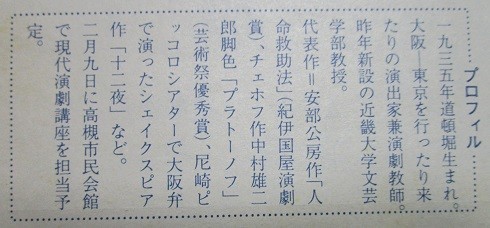 プロフィル
一九三五年道頓堀生まれ。
大阪―東京を行ったり来
たりの演出家兼演劇教師。
昨年新設の近畿大学文芸
学部教授。
代表作＝安部公房作「人
命救助法」(紀伊国屋演劇
賞)、チェホフ作中村雄二
郎脚色「プラトーノフ」
(芸術祭優秀賞)、尼崎ピ
ッコロシアターで大阪弁
で演ったシェイクスピア
作「十二夜」など。
二月九日に高槻市民会館
で現代演劇講座を担当予
定。